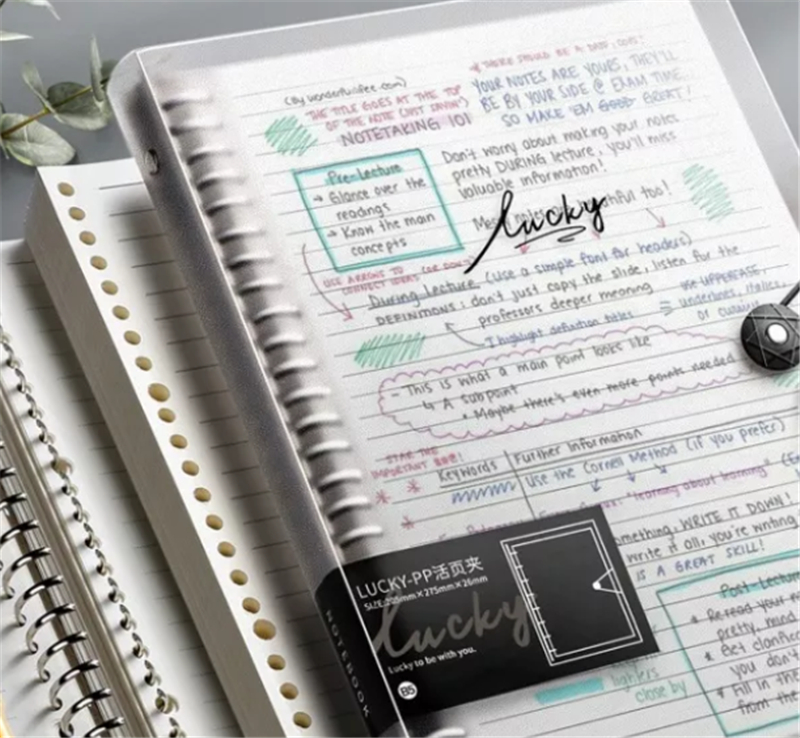 (By wonderfullifee.com)
* THERE SHOULD BE A DATE, GUYS!
THE TITLE GOES AT THE TOP
OF THE NOTE (JUST SAYIN')
NOTETAKING 101
YOUR NOTES ARE YOURS, THEY'LL
BE BY YOUR SIDE @ EXAM TIME
SO MAKE 'EM GOOD GREAT!
Pre-Lecture
→ Glance over the
readings
→ Know the main
concepts
Don't worry about making your notes
pretty DURING lecture, you'll miss
valuable information!
too!
lucky
USE ARROWS TO
CONNECT IDEAS (OR DON'T
During Lecture (use a simple font for headers)
DEFINITIONS: don't just copy the slide, listen for the
professors deeper meaning
I highlight definition titles
= use UPPERCASE,
underlines, italics,
or
- This is what a main point looks like
↳ A subpoint
• Maybe there's even more points needed
STAR THE
IMPORTANT
Keywords
Further Information
Use the Cornell Method (if you prefer)
"learning about learning"
something, WRITE IT DOWN!
write it all: you're writing
IS A GREAT SKILL!
LUCKY-PP活页夹
SIZE:205mm×275mm×26mm
lucky
Lucky to be with you.
B5
NOTEBOOK
Post-Lecture
* Re-read your
pretty, mind
* Get clarific
you don't
* Fill in the
from the
close by